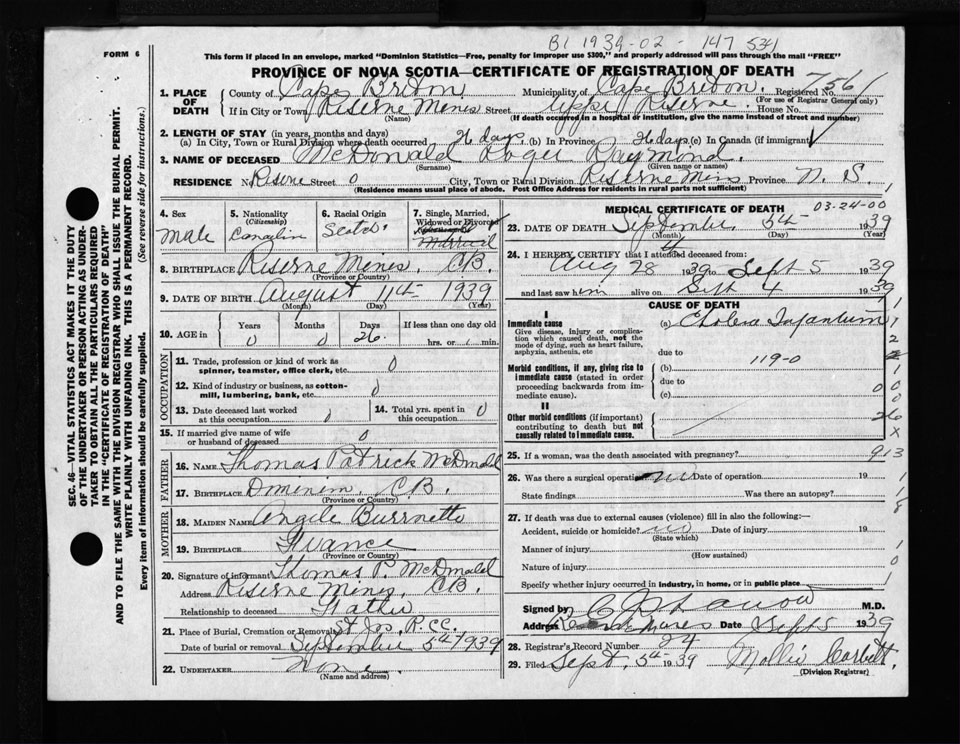 B1 1939-02-147534
FORM 6
This form if placed in an envelope, marked "Dominion Statistics—Free, penalty for improper use $300," and properly addressed will pass through the mail "FREE"
PROVINCE OF NOVA SCOTIA—CERTIFICATE OF REGISTRATION OF DEATH
1. PLACE OF DEATH
County of Cape Breton Municipality of Cape Breton Registered No. 7561
(For use of Registrar General only)
If in City or Town Reserve Mines Street Upper Reserve House No.
(Name) (If death occurred in a hospital or institution, give the name instead of street and number)
2. LENGTH OF STAY (in years, months and days)
(a) In City, Town or Rural Division where death occurred 26 days (b) In Province 26 days (c) In Canada (if immigrant)
3. NAME OF DECEASED McDonald Roger Raymond
(Surname) (Given name or names)
RESIDENCE No. Reserve Street 0 City, Town or Rural Division Reserve Mines Province N. S.
(Residence means usual place of abode. Post Office Address for residents in rural parts not sufficient)
4. Sex Male
5. Nationality (Citizenship)
6. Racial Origin Scotch
7. Single, Married, Widowed or Divorced
Married
8. BIRTHPLACE Reserve Mines, C.B.
(Province or Country)
9. DATE OF BIRTH August 11th 1939
(Month) (Day) (Year)
10. AGE in Years Months Days If less than one day old
0 0 26 hrs. or min.
OCCUPATION
11. Trade, profession or kind of work as spinner, teamster, office clerk, etc. 0
12. Kind of industry or business, as cotton-mill, lumbering, bank, etc. 0
13. Date deceased last worked at this occupation 0
14. Total yrs. spent in this occupation 0
15. If married give name of wife or husband of deceased 0
FATHER
16. NAME Thomas Patrick McDonald
17. BIRTHPLACE Dominion, C.B.
(Province or Country)
MOTHER
18. MAIDEN NAME Angele
19. BIRTHPLACE France
(Province or Country)
20. Signature of informant Thomas P. McDonald
Address Reserve Mines, C.B.
Relationship to deceased Father
21. Place of Burial, Cremation or Removal St Jos. R.CC.
Date of burial or removal September 5th 1939
22. UNDERTAKER None
(Name and address)
MEDICAL CERTIFICATE OF DEATH 03-24-00
23. DATE OF DEATH September 5th 1939
(Month) (Day) (Year)
24. I HEREBY CERTIFY that I attended deceased from:
Aug 28 1939 to Sept 5 1939
and last saw him alive on Sept 4 1939
CAUSE OF DEATH
I
Immediate cause (a) Cholera Infantum
Give disease, injury or complication which caused death, not the mode of dying, such as heart failure, asphyxia, asthenia, etc
due to
119-0
Morbid conditions, if any, giving rise to immediate cause (stated in order proceeding backwards from immediate cause). (b)
due to
(c)
II
Other morbid conditions (if important) contributing to death but not causally related to immediate cause.
25. If a woman, was the death associated with pregnancy? 913
26. Was there a surgical operation no Date of operation 19
State findings Was there an autopsy?
27. If death was due to external causes (violence) fill in also the following:—
Accident, suicide or homicide? no Date of injury 19
(State which)
Manner of injury
(How sustained)
Nature of injury
Specify whether injury occurred in industry, in home, or in public place
Signed by M.D.
Address Date Sept 5 1939
28. Registrar's Record Number 24
29. Filed Sept. 5th 1939 Mollie Corbett
(Division Registrar)
SEC. 46—VITAL STATISTICS ACT MAKES IT THE DUTY
OF THE UNDERTAKER OR PERSON ACTING AS UNDER-
TAKER TO OBTAIN ALL THE PARTICULARS REQUIRED
IN THE "CERTIFICATE OF REGISTRATION OF DEATH"
AND TO FILE THE SAME WITH THE DIVISION REGISTRAR WHO SHALL ISSUE THE BURIAL PERMIT.
WRITE PLAINLY WITH UNFADING INK. THIS IS A PERMANENT RECORD.
Every item of information should be carefully supplied. (See reverse side for instructions.)